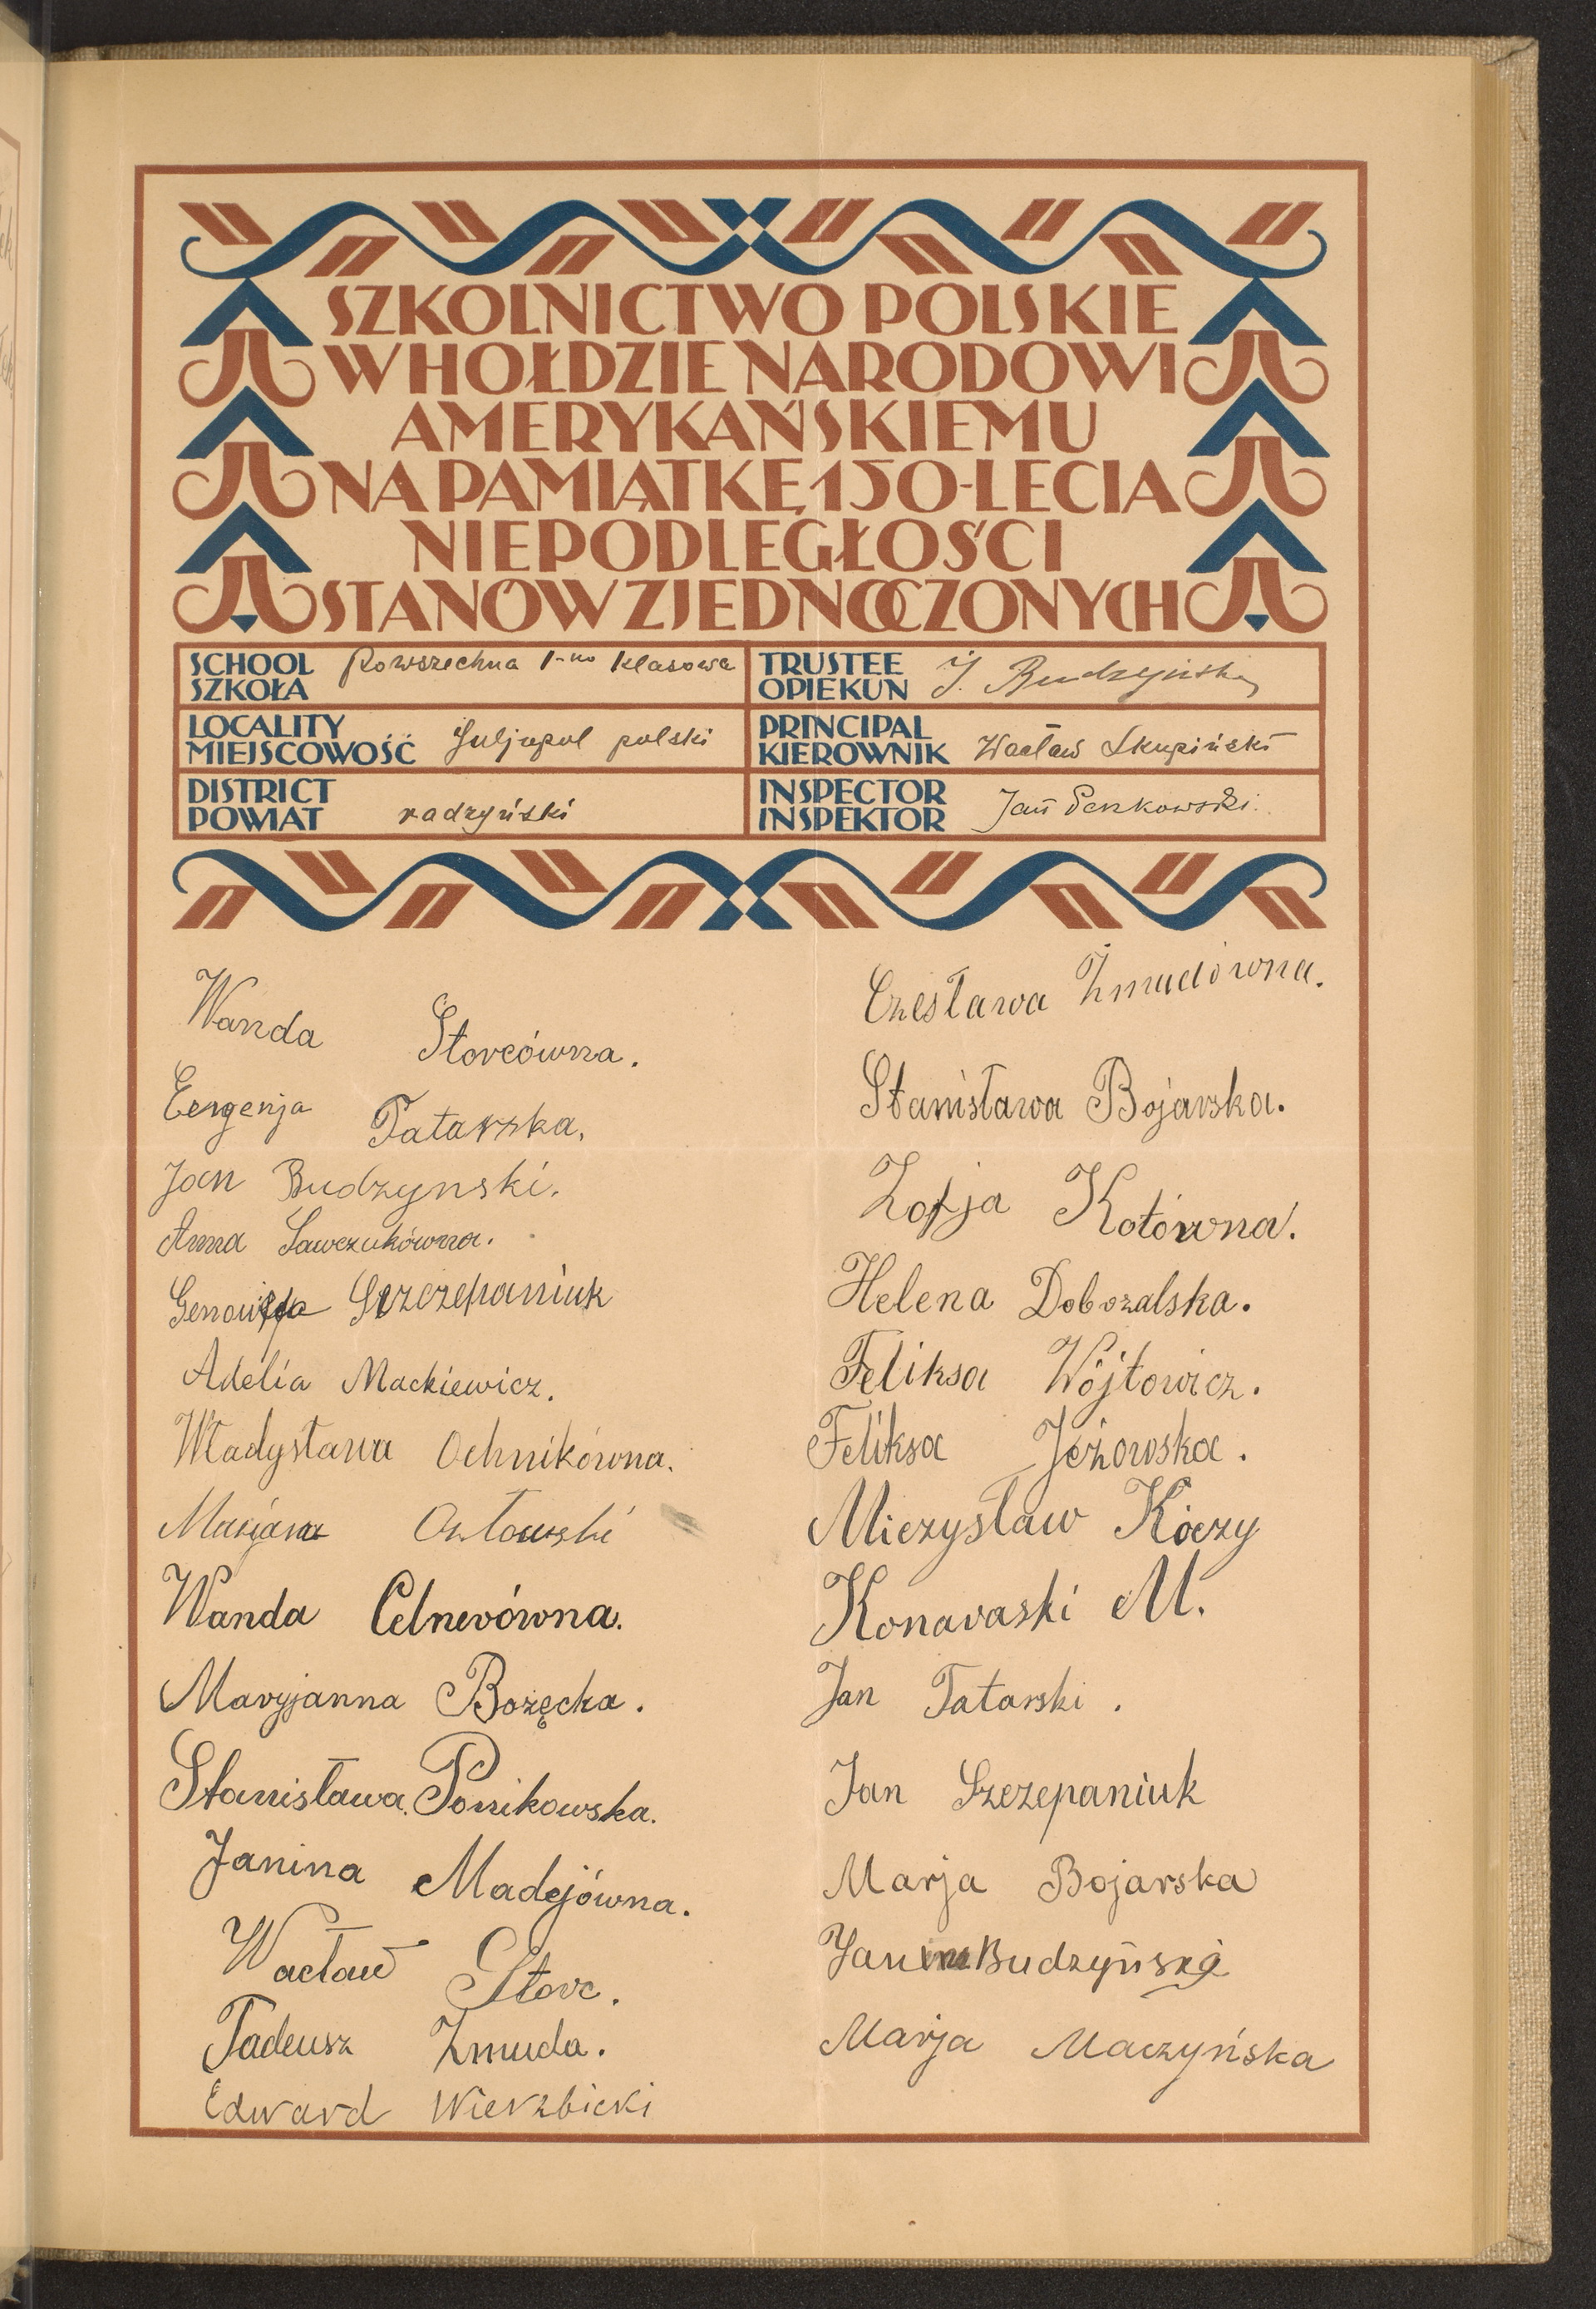 SZKOLNICTWO POLSKIE
W HOŁDZIE NARODOWI
AMERYKAŃSKIEMU
NA PAMIĄTKĘ 150-LECIA
NIEPODLEGŁOŚCI
STANÓW ZJEDNOCZONYCH
SCHOOL
SZKOŁA
Powszechna 1-no klasowa
TRUSTEE
OPIEKUN
J. Budzyński
LOCALITY
MIEJSCOWOŚĆ
Juljopol polski
PRINCIPAL
KIEROWNIK
Wacław Skupiński
DISTRICT
POWIAT
radzyński
INSPECTOR
INSPEKTOR
Jan Penkowski
Wanda Storcówna.
Eugenja Tatarska.
Jan Budzynski.
Anna Sawczukówna.
Genowefa Szczepaniuk
Adelia Mackiewicz.
Władysława Ochnikówna.
Marjan Osłowski
Wanda Celnerówna.
Maryjanna Bożęcka.
Stanisława Ponikowska.
Janina Madejówna.
Wacław Storc.
Tadeusz Żmuda.
Edward Wierzbicki
Czesława Żmudówna.
Stanisława Bojarska.
Zofja Kotówna.
Helena Dobozalska.
Feliksa Wójtowicz.
Feliksa Jeżowska.
Mieczysław Koczy
Konaraski M.
Jan Tatarski.
Jan Szczepaniuk
Marja Bojarska
Budzyńska
Marja Maczyńska